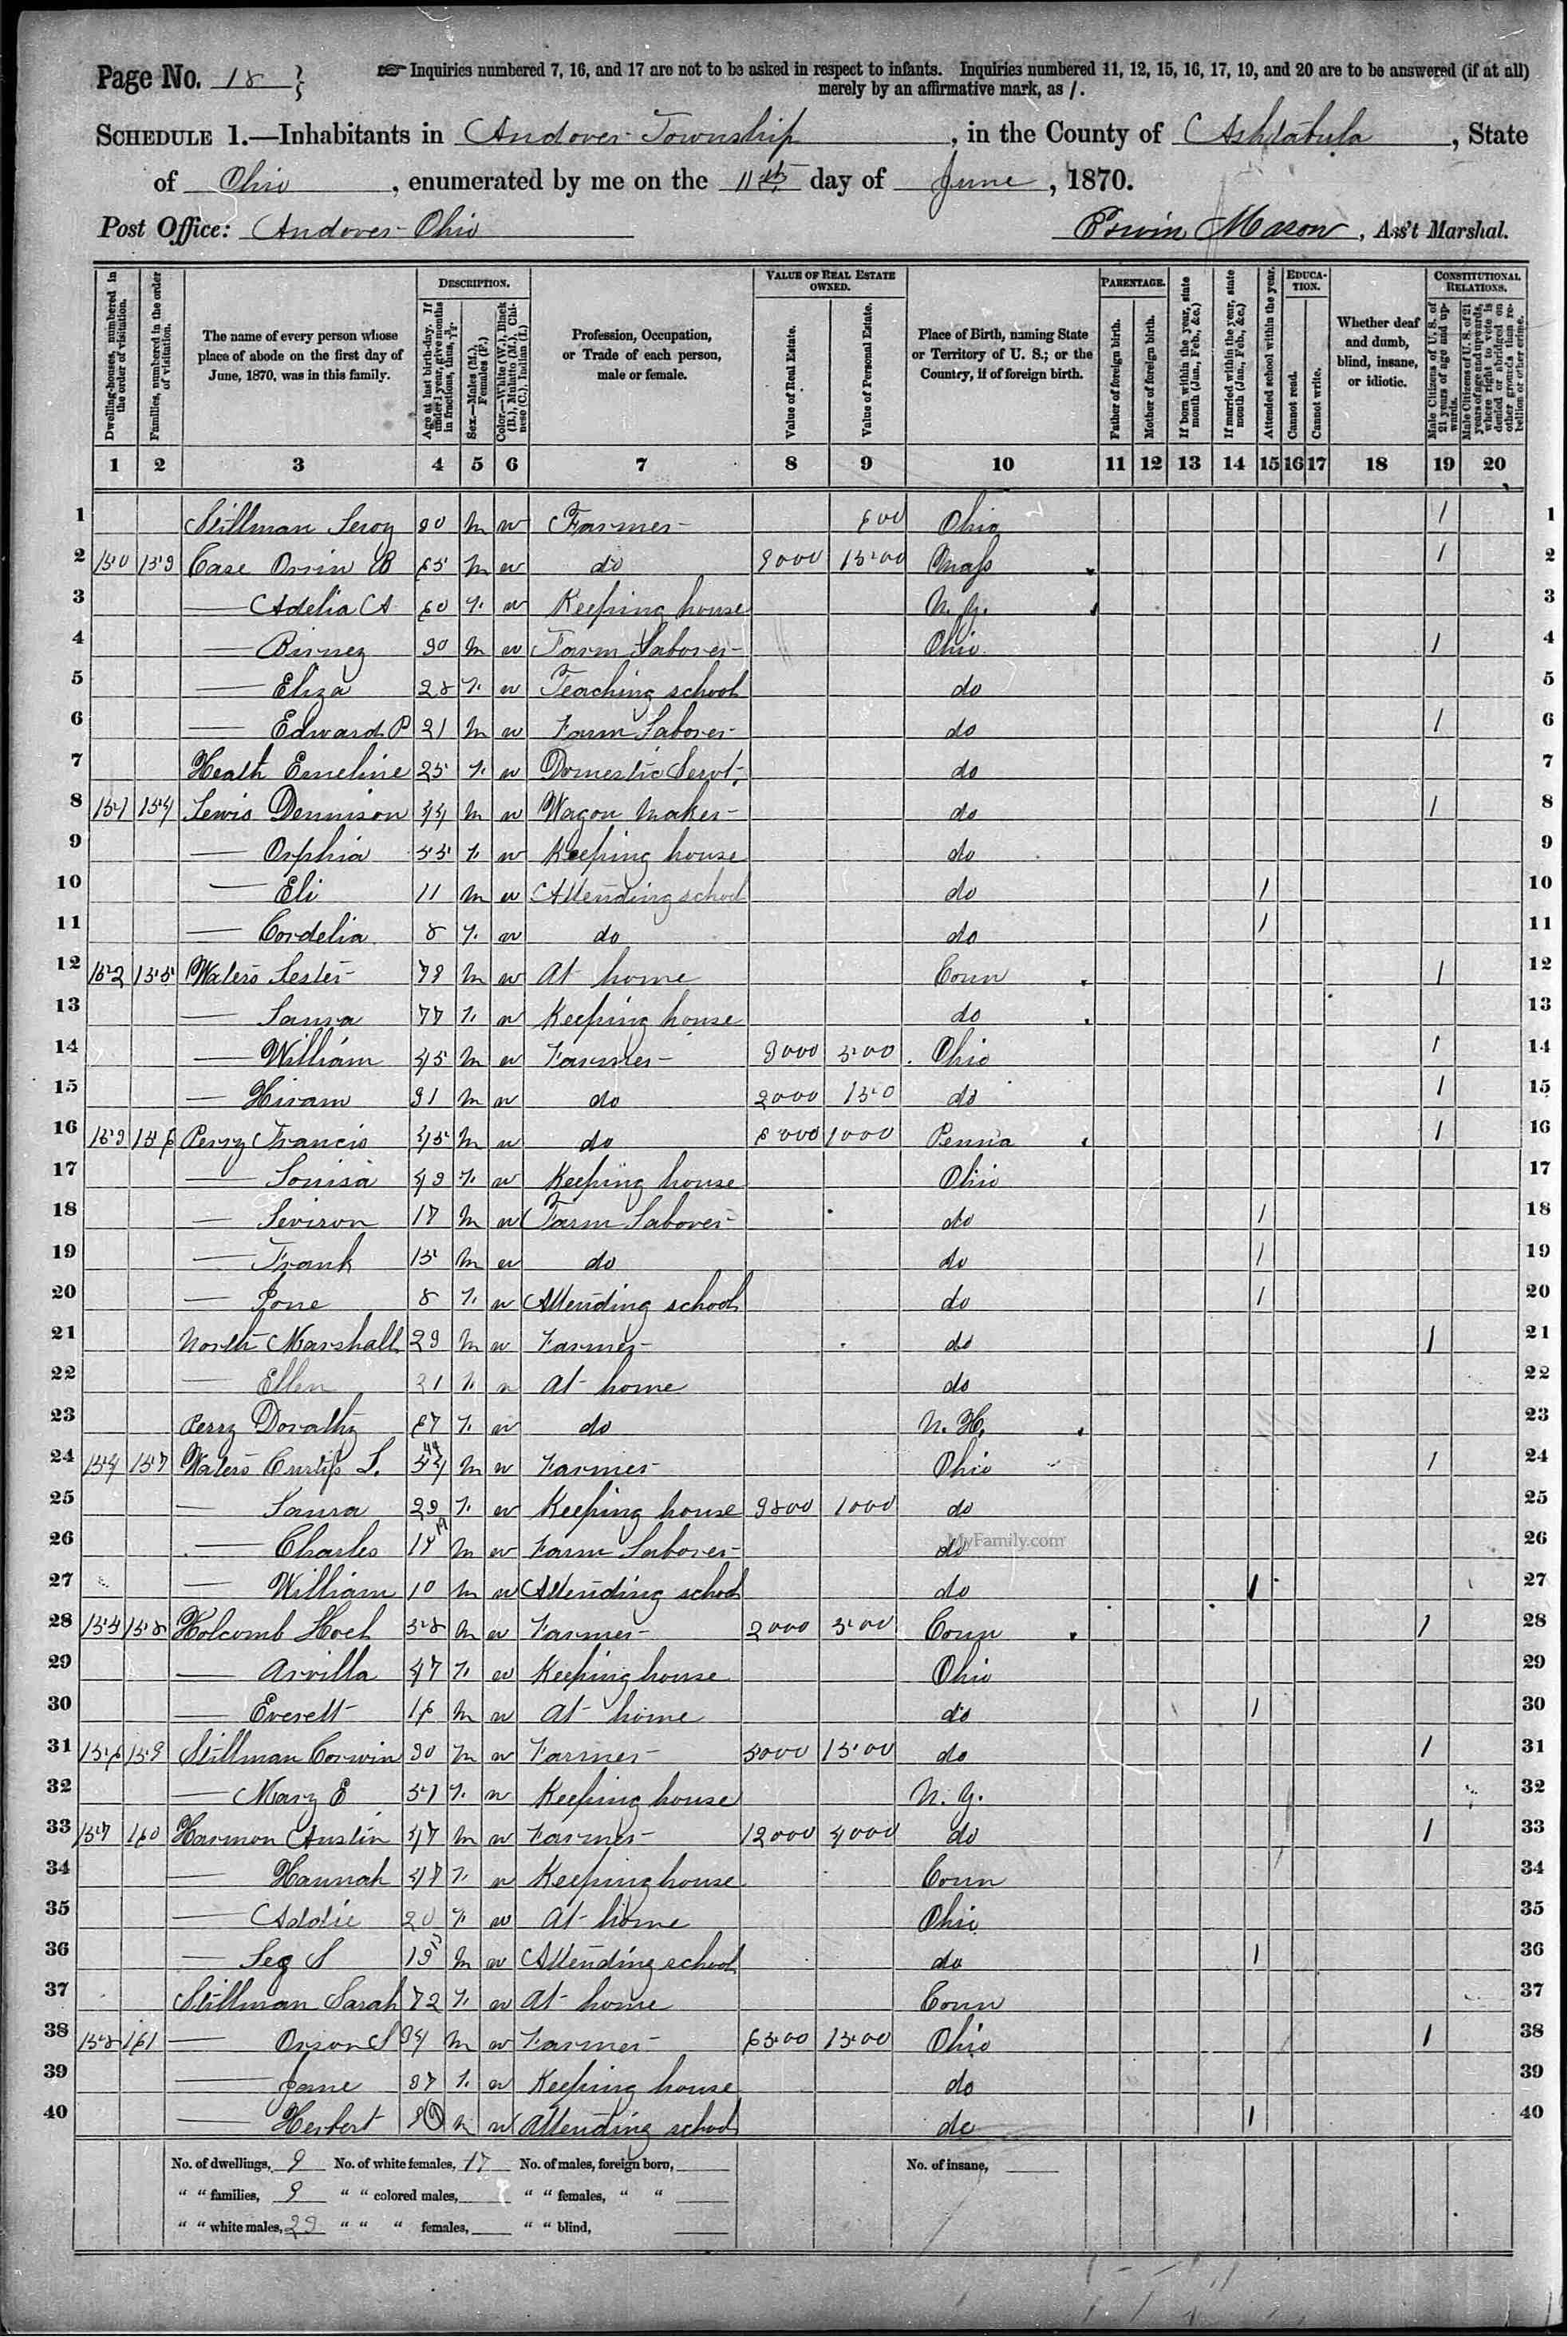 Page No. 18
☞ Inquiries numbered 7, 16, and 17 are not to be asked in respect to infants. Inquiries numbered 11, 12, 15, 16, 17, 19, and 20 are to be answered (if at all)
merely by an affirmative mark, as /.
SCHEDULE 1.—Inhabitants in Andover Township, in the County of Ashtabula, State
of Ohio, enumerated by me on the 11th day of June, 1870.
Post Office: Andover Ohio Erwin Mason, Ass't Marshal.
Dwelling-houses, numbered in the order of visitation.
Families, numbered in the order of visitation.
The name of every person whose place of abode on the first day of June, 1870, was in this family.
DESCRIPTION.
Age at last birth-day. If under 1 year, give months in fractions, thus, 3/12.
Sex.—Males (M.), Females (F.)
Color.—White (W.), Black (B.), Mulatto (M.), Chinese (C.), Indian (I.)
Profession, Occupation, or Trade of each person, male or female.
VALUE OF REAL ESTATE OWNED.
Value of Real Estate.
Value of Personal Estate.
Place of Birth, naming State or Territory of U. S.; or the Country, if of foreign birth.
PARENTAGE.
Father of foreign birth.
Mother of foreign birth.
If born within the year, state month (Jan., Feb., &c.)
If married within the year, state month (Jan., Feb., &c.)
Attended school within the year.
EDUCATION.
Cannot read.
Cannot write.
Whether deaf and dumb, blind, insane, or idiotic.
CONSTITUTIONAL RELATIONS.
Male Citizens of U. S. of 21 years of age and upwards.
Male Citizens of U. S. of 21 years of age and upwards, whose right to vote is denied or abridged on other grounds than rebellion or other crime.
1 2 3 4 5 6 7 8 9 10 11 12 13 14 15 16 17 18 19 20
1 Stillman Leroy 30 M W Farmer 600 Ohio 1 1
2 150 153 Case Orrin B 65 M W do 3000 1500 Mass 1 2
3 — Adelia A 60 F. W Keeping house N. Y. 3
4 — Birney 30 M W Farm Laborer Ohio 1 4
5 — Eliza 28 F. W Teaching school do 5
6 — Edward P 21 M W Farm Laborer do 1 6
7 Heath Emeline 25 F. W Domestic Servt. do 7
8 151 154 Lewis Dennison 44 M W Wagon Maker do 1 8
9 — Orphia 55 F. W Keeping house do 9
10 — Eli 11 M W Attending school do 1 10
11 — Cordelia 8 F. W do do 1 11
12 152 155 Waters Lester M W At home Conn 1 12
13 — Laura 77 F. W Keeping house do 13
14 — William 45 M W Farmer 3000 500 Ohio 1 14
15 — Hiram 31 M W do 2000 150 do 1 15
16 153 156 Perry Francis 45 M W do 6000 1000 Penna 1 16
17 — Louisa 43 F. W Keeping house Ohio 17
18 — Levison 17 M W Farm Laborer do 1 18
19 — Frank 15 M W do do 1 19
20 — 8 F. W Attending school do 1 20
21 North Marshall 23 M W Farmer do 1 21
22 — Ellen 21 F. W At home do 22
23 Perry Dorathy 67 F. W do N. H. 23
24 154 157 Waters Curtiss L. 44 M W Farmer Ohio 1 24
25 — Laura F. W Keeping house 1000 do 25
26 — Charles M W Farm Laborer do 26
27 — William 10 M W Attending school do 1 27
28 155 158 Holcomb 58 M W Farmer 2000 500 Conn 1 28
29 — Arvilla 47 F. W Keeping house Ohio 29
30 — Everett 16 M W At home do 1 30
31 156 159 Stillman Corwin 30 M W Farmer 5000 1500 do 1 31
32 — Mary E F. W Keeping house N. Y. 32
33 157 160 Harmon Austin 47 M W Farmer 12000 4000 do 1 33
34 — Hannah 47 F. W Keeping house Conn 34
35 — Addie 20 F. W At home Ohio 35
36 — S M W Attending school do 1 36
37 Stillman Sarah 72 F. W At home Conn 37
38 158 161 — Orson S 34 M W Farmer 6500 1500 Ohio 1 38
39 — Jane 37 F. W Keeping house do 39
40 — Herbert M W Attending school do 1 40
MyFamily.com
No. of dwellings, 9 No. of white females, 17 No. of males, foreign born, No. of insane,
" " families, 9 " " colored males, " " females, " "
" " white males, 23 " " " females, " " blind,